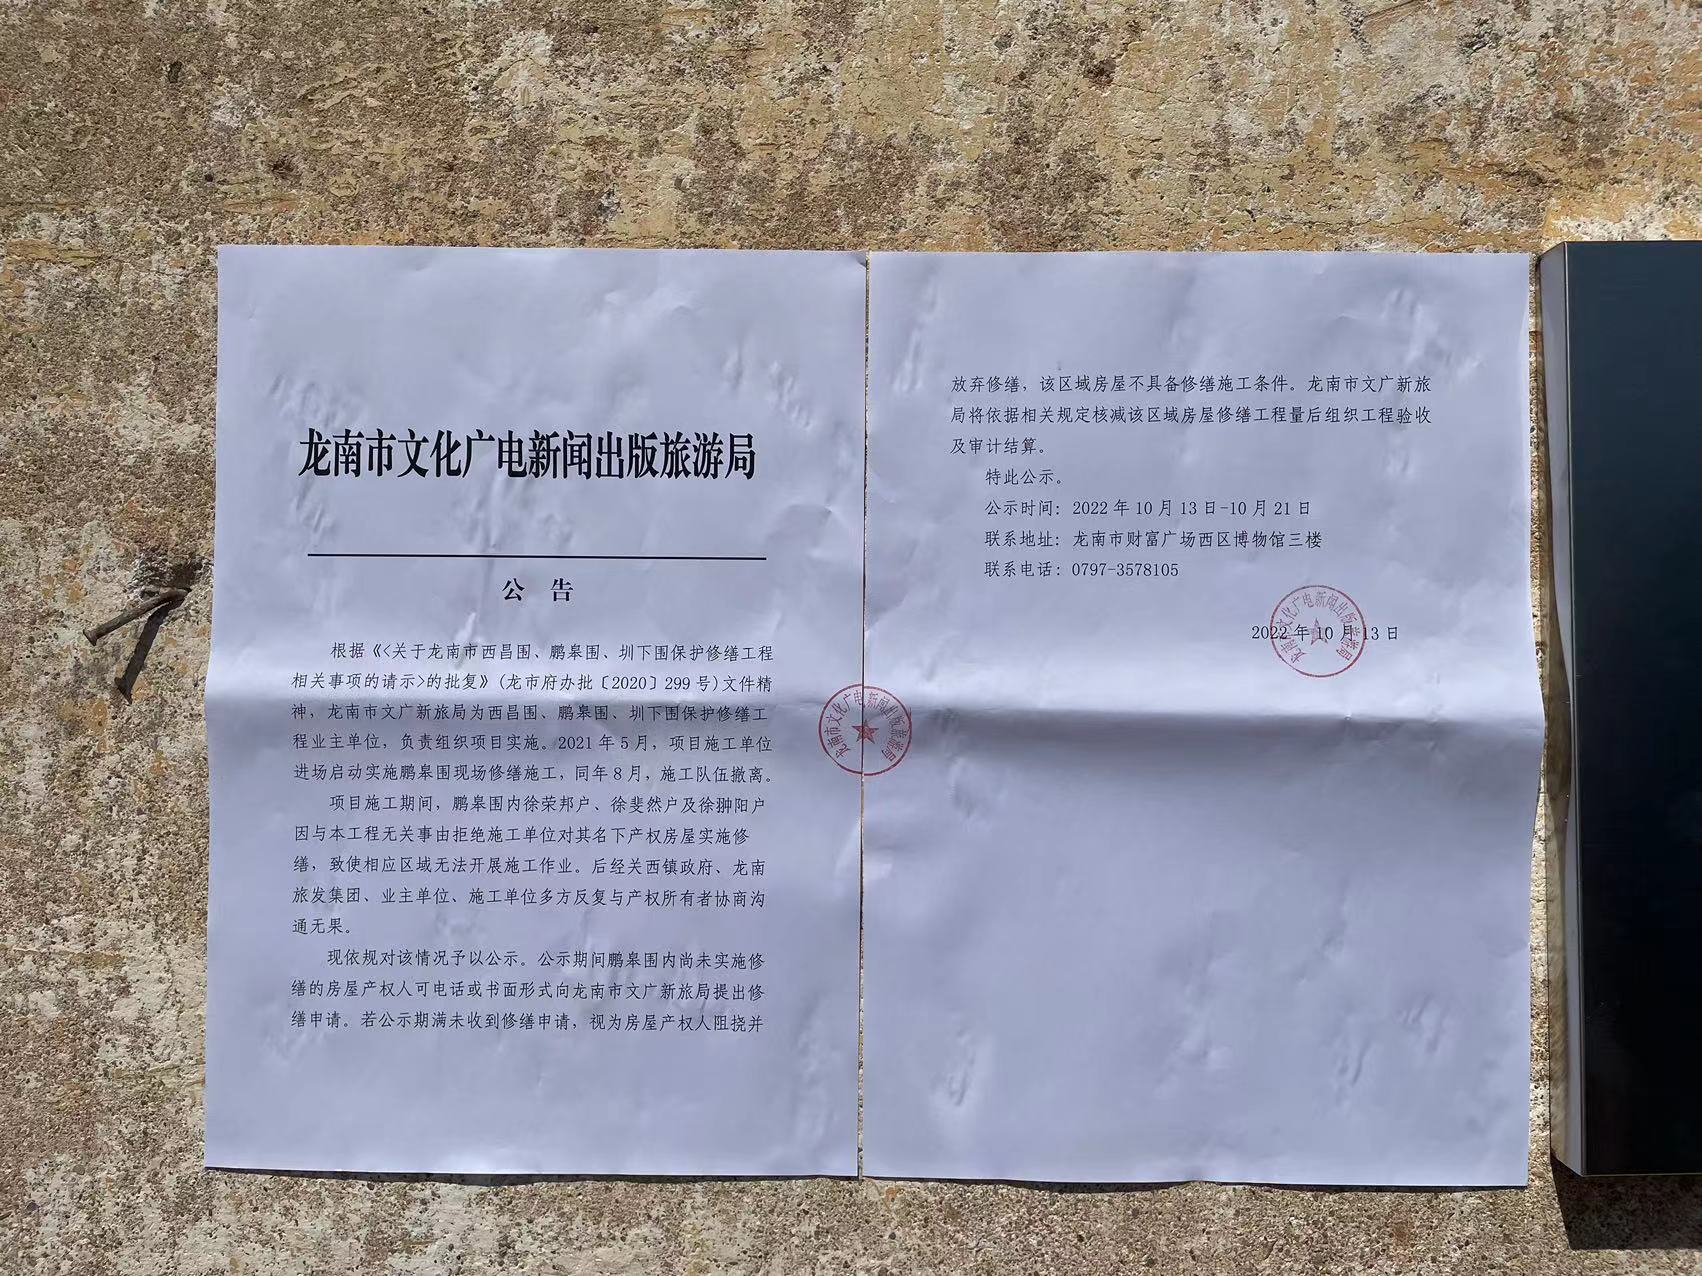 龙南市文化广电新闻出版旅游局
公 告
根据《<关于龙南市西昌围、鹏皋围、圳下围保护修缮工程
相关事项的请示>的批复》(龙市府办批〔2020〕299号)文件精
神，龙南市文广新旅局为西昌围、鹏皋围、圳下围保护修缮工
程业主单位，负责组织项目实施。2021年5月，项目施工单位
进场启动实施鹏皋围现场修缮施工，同年8月，施工队伍撤离。
项目施工期间，鹏皋围内徐荣邦户、徐斐然户及徐翀阳户
因与本工程无关事由拒绝施工单位对其名下产权房屋实施修
缮，致使相应区域无法开展施工作业。后经关西镇政府、龙南
旅发集团、业主单位、施工单位多方反复与产权所有者协商沟
通无果。
现依规对该情况予以公示。公示期间鹏皋围内尚未实施修
缮的房屋产权人可电话或书面形式向龙南市文广新旅局提出修
缮申请。若公示期满未收到修缮申请，视为房屋产权人阻挠并
放弃修缮，该区域房屋不具备修缮施工条件。龙南市文广新旅
局将依据相关规定核减该区域房屋修缮工程量后组织工程验收
及审计结算。
特此公示。
公示时间：2022年10月13日-10月21日
联系地址：龙南市财富广场西区博物馆三楼
联系电话：0797-3578105
2022年10月13日
龙南市文化广电新闻出版旅游局
龙南市文化广电新闻出版旅游局